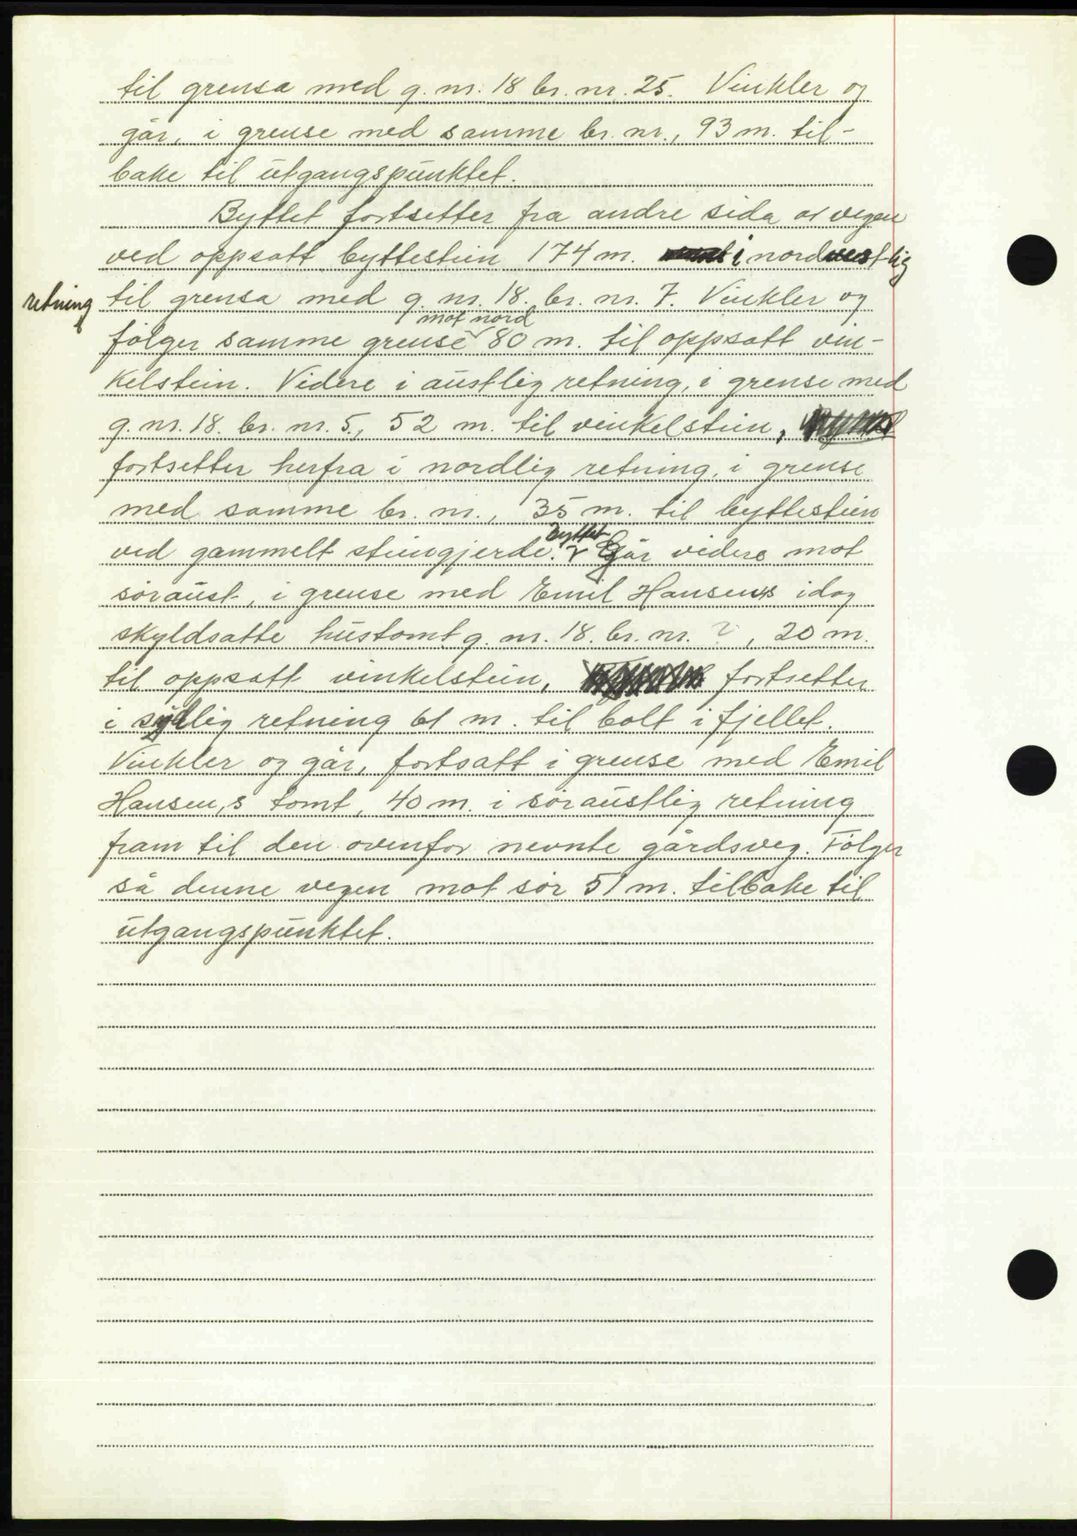 til grensa med g. nr. 18 br. nr. 25. Vinkler og
går, i grense med samme br. nr., 93 m. til-
bake til utgangspunktet.
Byttet fortsetter fra andre sida av vegen
ved oppsatt byttestein 174 m. i nordvestlig
retning til grensa med g. nr. 18. br. nr. 7. Vinkler og
mot nord
følger samme grense 80 m. til oppsatt vin-
kelstein. Videre i austlig retning, i grense med
g. nr. 18. br. nr. 5., 52 m. til vinkelstein,
fortsetter herfra i nordlig retning, i grense
med samme br. nr., 35 m. til byttestein
Byttet
ved gammelt steingjerde. går videre mot
søraust, i grense med Emil Hansens idag
skyldsatte hustomt g. nr. 18. br. nr. ? , 20 m.
til oppsatt vinkelstein, fortsetter
i sørlig retning 61 m. til bolt i fjellet.
Vinkler og går, fortsatt i grense med Emil
Hansen,s tomt, 40 m. i søraustlig retning
fram til den ovenfor nevnte gårdsveg. Følger
så denne vegen mot sør 51 m. tilbake til
utgangspunktet.